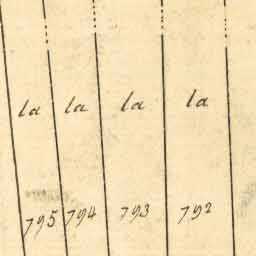 la la la la
795 794 793 792